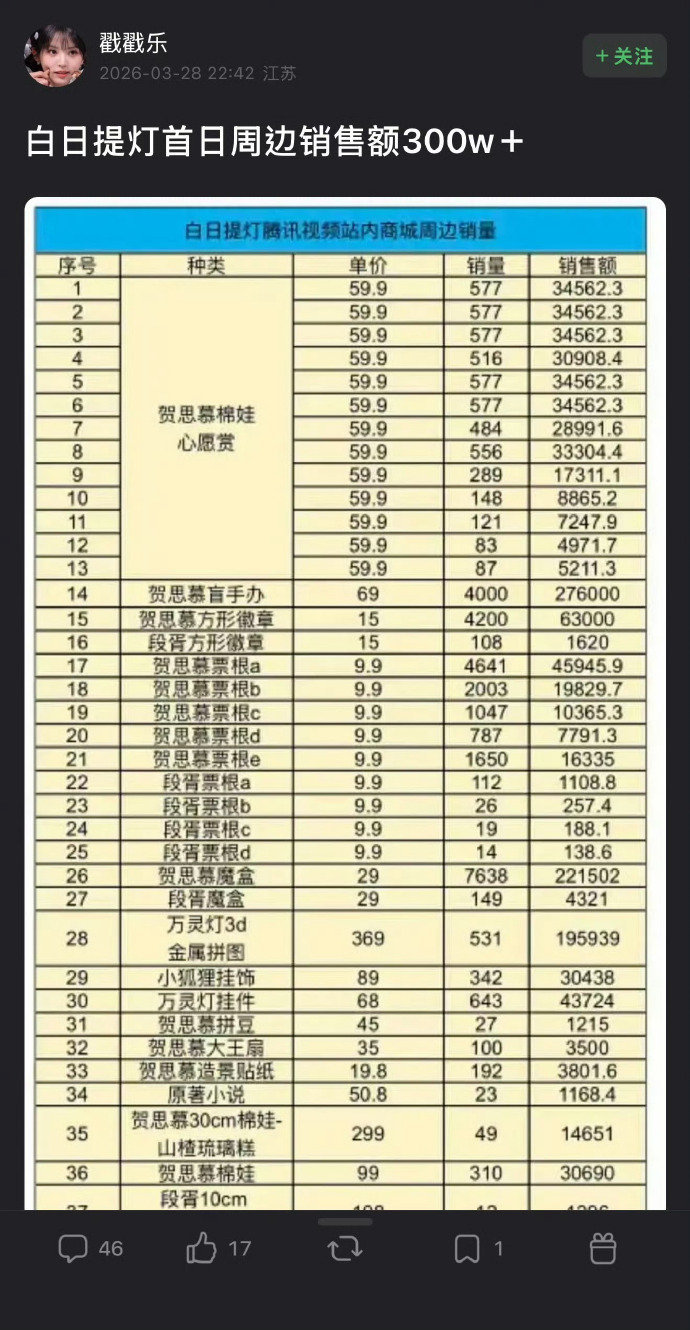 戳戳乐
2026-03-28 22:42 江苏
+关注
白日提灯首日周边销售额300w+
白日提灯腾讯视频站内商城周边销量
序号 种类 单价 销量 销售额
1 59.9 577 34562.3
2 59.9 577 34562.3
3 59.9 577 34562.3
4 59.9 516 30908.4
5 59.9 577 34562.3
6 59.9 577 34562.3
贺思慕棉娃
7 59.9 484 28991.6
心愿赏
8 59.9 556 33304.4
9 59.9 289 17311.1
10 59.9 148 8865.2
11 59.9 121 7247.9
12 59.9 83 4971.7
13 59.9 87 5211.3
14 贺思慕盲手办 69 4000 276000
15 贺思慕方形徽章 15 4200 63000
16 段胥方形徽章 15 108 1620
17 贺思慕票根a 9.9 4641 45945.9
18 贺思慕票根b 9.9 2003 19829.7
19 贺思慕票根c 9.9 1047 10365.3
20 贺思慕票根d 9.9 787 7791.3
21 贺思慕票根e 9.9 1650 16335
22 段胥票根a 9.9 112 1108.8
23 段胥票根b 9.9 26 257.4
24 段胥票根c 9.9 19 188.1
25 段胥票根d 9.9 14 138.6
26 贺思慕魔盒 29 7638 221502
27 段胥魔盒 29 149 4321
万灵灯3d
28 369 531 195939
金属拼图
29 小狐狸挂饰 89 342 30438
30 万灵灯挂件 68 643 43724
31 贺思慕拼豆 45 27 1215
32 贺思慕大王扇 35 100 3500
33 贺思慕造景贴纸 19.8 192 3801.6
34 原著小说 50.8 23 1168.4
贺思慕30cm棉娃-
35 299 49 14651
山楂琉璃糕
36 贺思慕棉娃 99 310 30690
段胥10cm
46 17 1